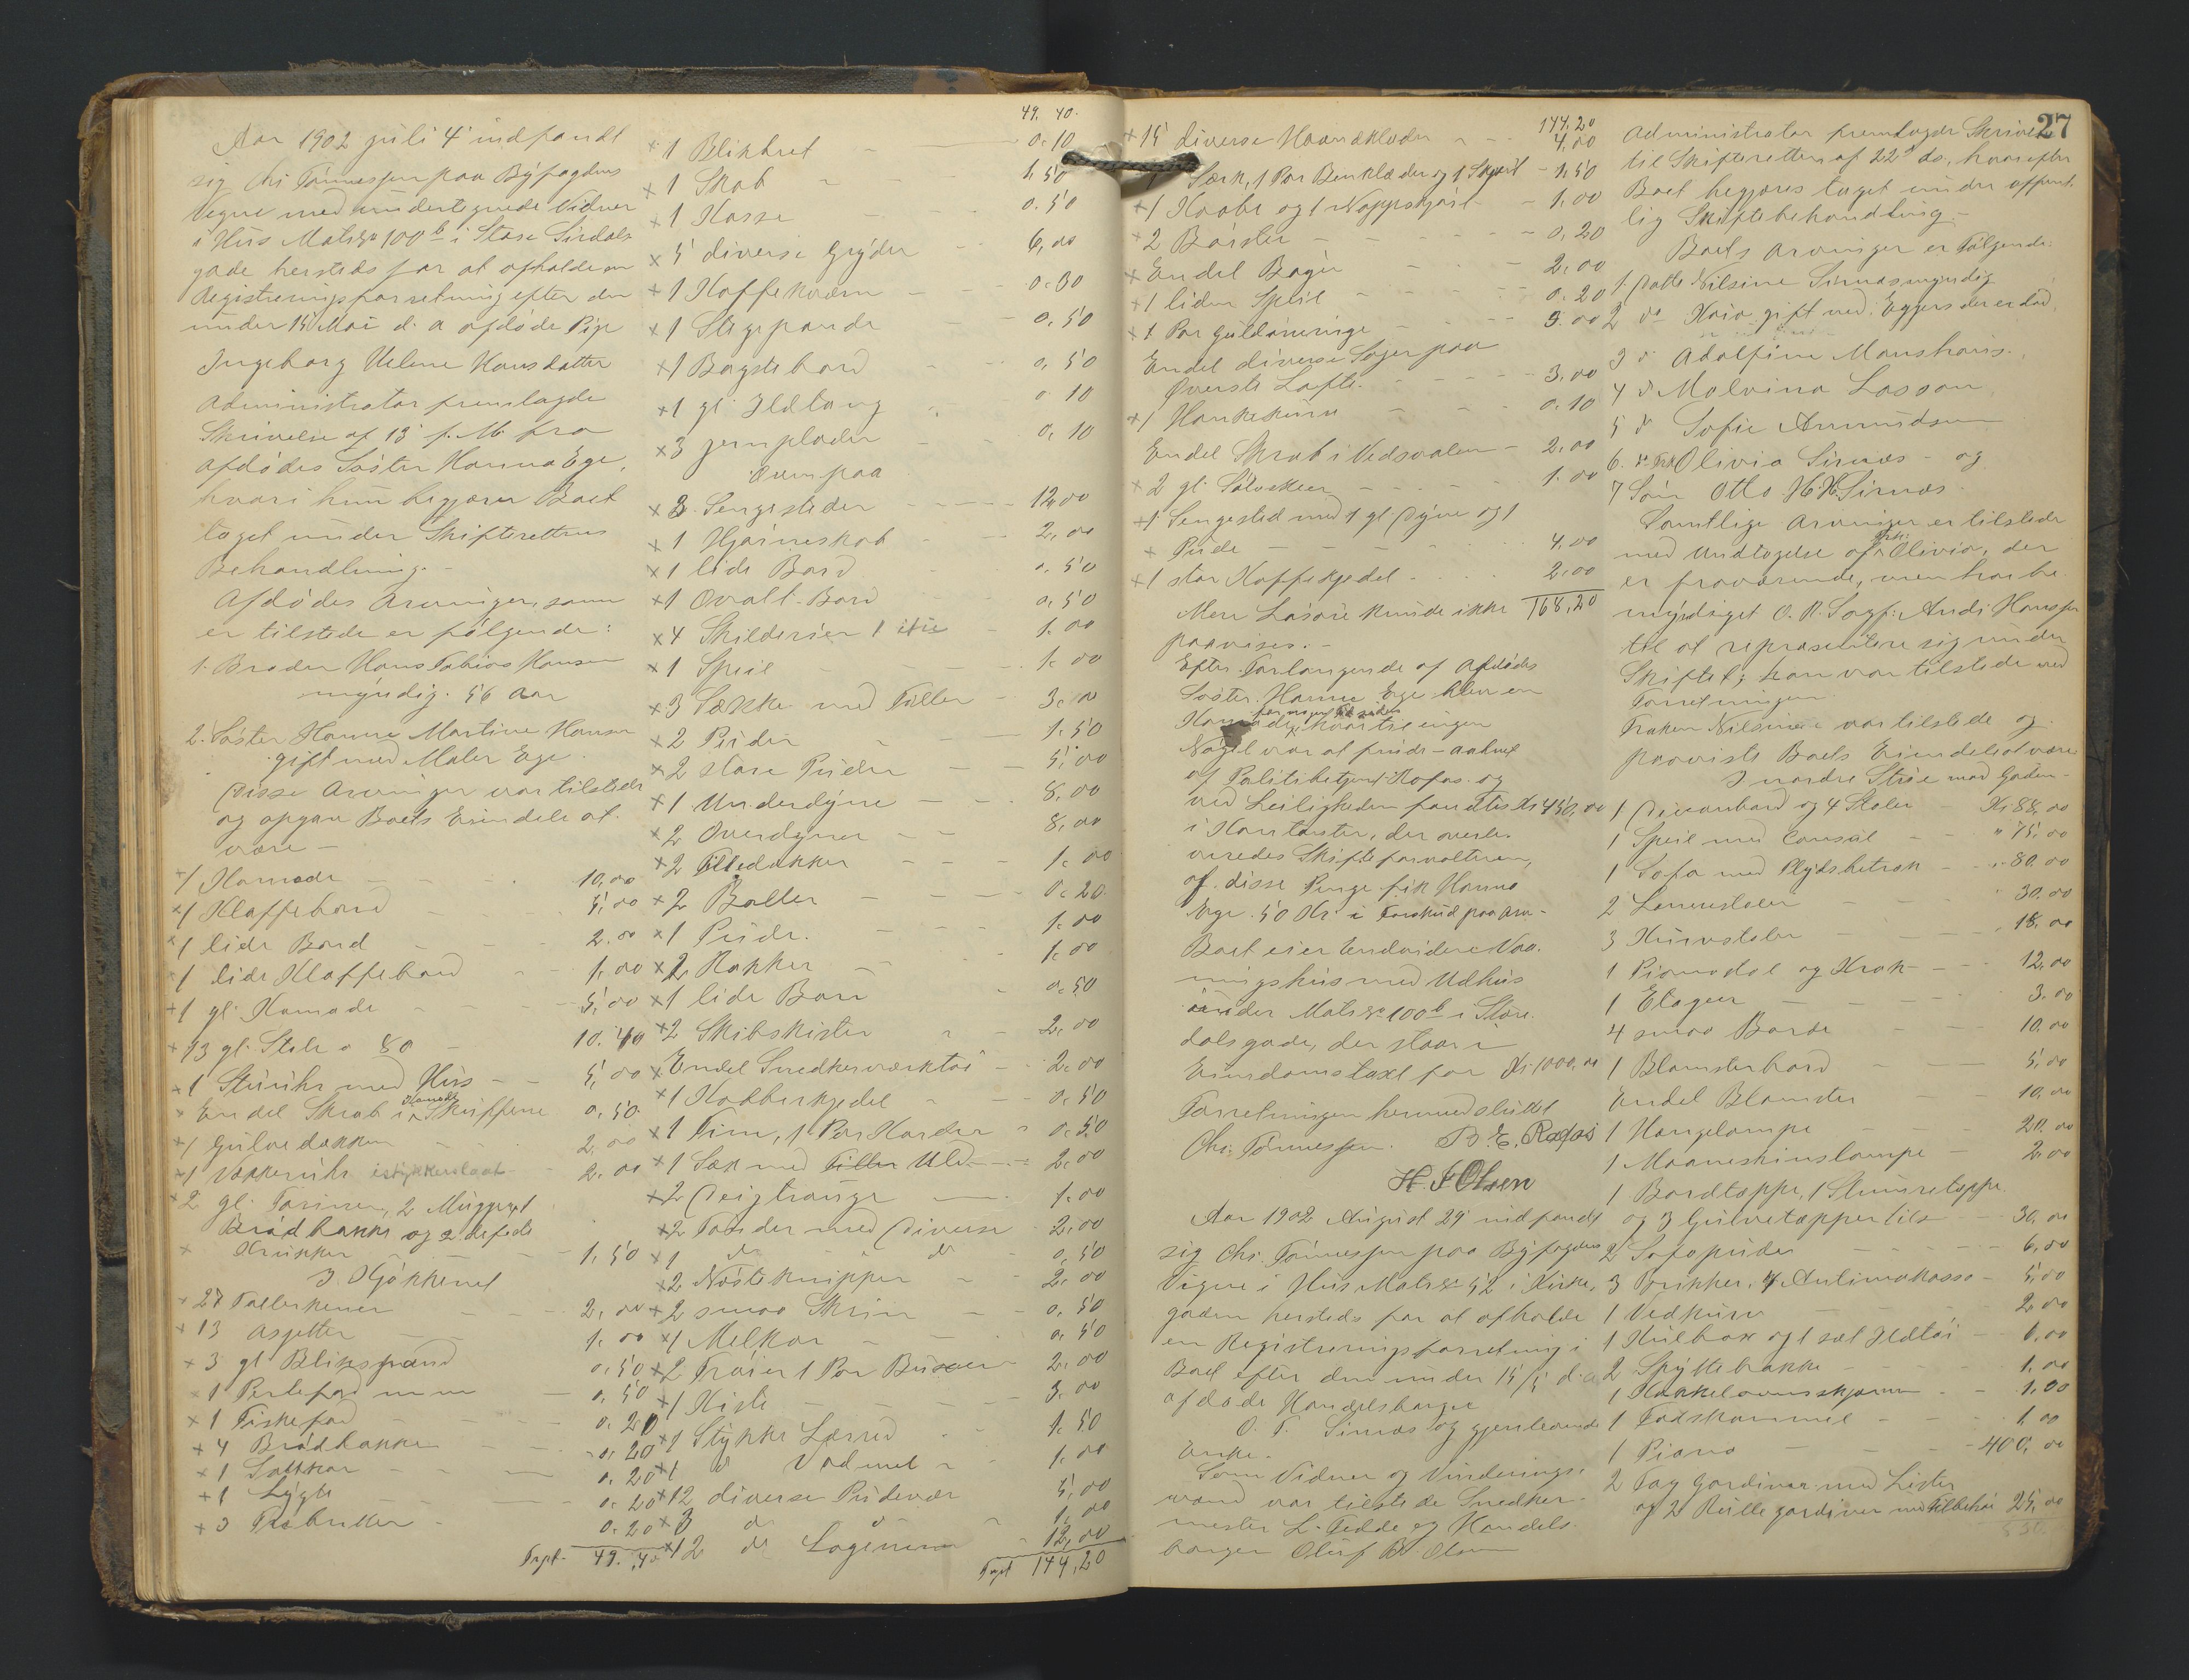 Aar 1902 juli 4 indfandt
sig Chr Tönnessen paa Byfogdens
Vegne med undertegnede Vidner
i Hus Matr No 100 b i Store Sirdals
gade hersteds for at afholde en
Registreringsforretning efter den
under 15 Mai d. a afdöde Pige
Ingeborg Helene Hansdatter
Administrator fremlagde
Skrivelse af 13 f. M. fra
afdödes Söster Hanna Ege,
hvori hun begjærer Boet
taget under Skifterettens
Behandling. -
Afdödes Arvinger, som
er tilstede er fölgende:
1. Broder Hans Tobias Hansen
myndig. 56 Aar
2. Söster Hanne Martine Hansen
gift med Maler Ege.
Disse Arvinger var tilstede
og opgav Boets Eiendele at
være -
1 Komode 10,00
1 Klaffebord 5,00
1 lide Bord 2.00
1 lide Klaffebord 1,00
1 gl. Komode 5,00
13 gl. Stole a 80 10.40
1 Stueuhr med Hus 5,00
Endel Skrab i Komode Skuffene 0,50
1 Gulvedækken 2,00
1 Vækkeruhr istykkerslaat 2.00
2 gl. Tönner, 2 Mugger, 1
Brödbakke og 2 defecte
Krukker 1,50
I Kjökkenet
27 Tallerkener 2,00
13 Asjetter 1.00
3 gl Blikspand 0,50
1 Perlefad 0,50
1 Fiskefad 0.20
4 Brödbakker 0.20
1 Saltkar 0.20
1 Lygte 0.20
3 Træbutter 0.20
Trpt. 49.40
49.40.
1 Blikbret 0.10
1 Skab 1,50
1 Kasse 0.50
5 diverse Gryder 6,00
1 Kaffekværn 0.30
1 Stegepande 0,50
1 Bagstebord 0,50
1 gl Ildtang 0 10
3 jernplader 0,10
Ovenpaa
3 Sengesteder 12,00
1 Hjörneskab 2,00
1 lide Bord 0,50
1 Ovalt Bord 0,50
4 Skilderier 1 itu 1.00
1 Speil 1.00
3 Sække med Filler 3,00
2 Puder 1.50
2 store Puder 5,00
1 Underdyne 8,00
2 Overdyner 8,00
2 Filledækker 1.00
2 Baller 0.20
1 Pude. 1.00
2 Rokker 1.00
1 lide Bord 0.50
2 Skibskister 2,00
Endel Snedkerværktöi 2.00
1 Kobberkjedel 0,50
1 Tine, 1 Par Karder 0.50
1 Sæk med Filler Uld 2,00
2 Deigtrauge 1.00
2 Tönder med Diverse 2,00
1 do do 0,50
2 Nösteknipper 2.00
2 smaa Skrin 0,50
1 Melkar 0,50
2 Tröier 1 Par Buxer 2,00
1 Kiste 3,00
1 Stykke Lærred 1.50
1 d Vadmel 1.00
12 diverse Pudevær 5,00
3 do d 1,00
12 do Lagener 12,00
Trpt 144,20
144.20
15 diverse Haandklæder 4,00
Særk, 1 Par Benklæder og 1 Skjört 1,50
1 Kaabe og 1 Noppeskjört 1.00
2 Börster 0,20
Endel Böger 2,00
1 liden Speil 0.20
1 Par Guldöreringe 5.00
Endel diverse Sager paa
Överste Loft. 3,00
1 Hankekurv 0.10
Endel Skrab i Vedsvalen 2,00
2 gl. Sölvskeer 1.00
1 Sengested med 1 gl Dyne og 1
Pude 4,00
1 stor Kaffekjedel 2.00
168,20
Mere Lösöre kunde ikke
paavises. -
Efter Forlangende af Afdödes
Söster, Hanne Ege blev en
Komode, hvortil ingen
Nögel var at finde - aabnet
af Politibetjent Rafos og
ved Leiligheden fandtes Kr 450,00
i Kontanter, der overle-
veredes Skifteforvalteren,
af disse Penge fik Hanna
Ege 50 Kr. i Forskud paa Arv -
Boet eier endvidere Vaa-
ningshus med Udhus
under Matr No 100 b i Store
dalsgade, der staar i
Eiendomstaxt for Kr 1000,00
Forretningen hermed sluttet
Chr. Tönnessen. B. E. Rafos
H. F Olsen
Aar 1902 August 29 indfandt
sig Chr. Tönnessen paa Byfogdens
Vegne i Hus Matr No 52 i Kirke-
gaden hersteds for at afholde
en Registreringsforretning i
Boet efter den under 15/5 d. a
afdöde Handelsborger
O. T. Sirnæs og gjenlevende
Enke.
Som Vidner og Vurderings-
mænd var tilstede Snedker-
mester L. Tedde og Handels-
borger Oluf B. Olsen
27
Administrator fremlagde Skrivelse
til Skifteretten af 22 ds, hvorefter
Boet begjæres taget under offent-
lig Skiftebehandling. -
Boets Arvinger er Fölgende:
1. Datte Nilsine Sirnæs myndig
2 do Kaia gift med. Eggers der er död
3 d Adolfine Monshaus.
4 d Malvina Lasson
5 d Sofie Amundsen
6. do Frk Olivia Sirnæs - og
7 Sön Otto H. H. Sirnæs.
Samtlige Arvinger er tilstede
med Undtagelse af Frk. Olivia, der
er fraværende, men har be-
myndiget O. R. Sagf. Ands Hanssen
til at repræsentere sig under
Skiftet; han var tilstede ved
Forretningen.
Fröken Nilsine var tilstede og
paaviste Boets Eiendele at være
I nordre Stue mod Gaden -
1 Divanbord og 4 Stoler Kr 88,00
1 Speil med Consol " 75,00
1 Sofa med Plydsbetræk 80,00
2 Lænestoler 30.00
3 Kurvstoler 18,00
1 Pianostol og Krak 12,00
1 Etager 3.00
4 smaa Borde 10.00
1 Blomsterbord 5,00
Endel Blomster 10,00
1 Hængelampe 20.00
1 Maaneskinslampe 2,00
1 Bordtæppe, 1
og 3 Gulvetæpper 30,00
2 Sofapuder 6,00
3 Brikker, 4 Antimakasser 5,00
1 Vedkurv 2.00
1 Kulbox og 1 sæt Ildtöi 6,00
2 Spyttebakke 1,00
1 Kakkelovnsskjærm 1,00
1 Fodskammel 1,00
1 Piano 400,00
2 Fag Gardiner med Lister
og 2 Rullegardiner med Tilbehör 25,00